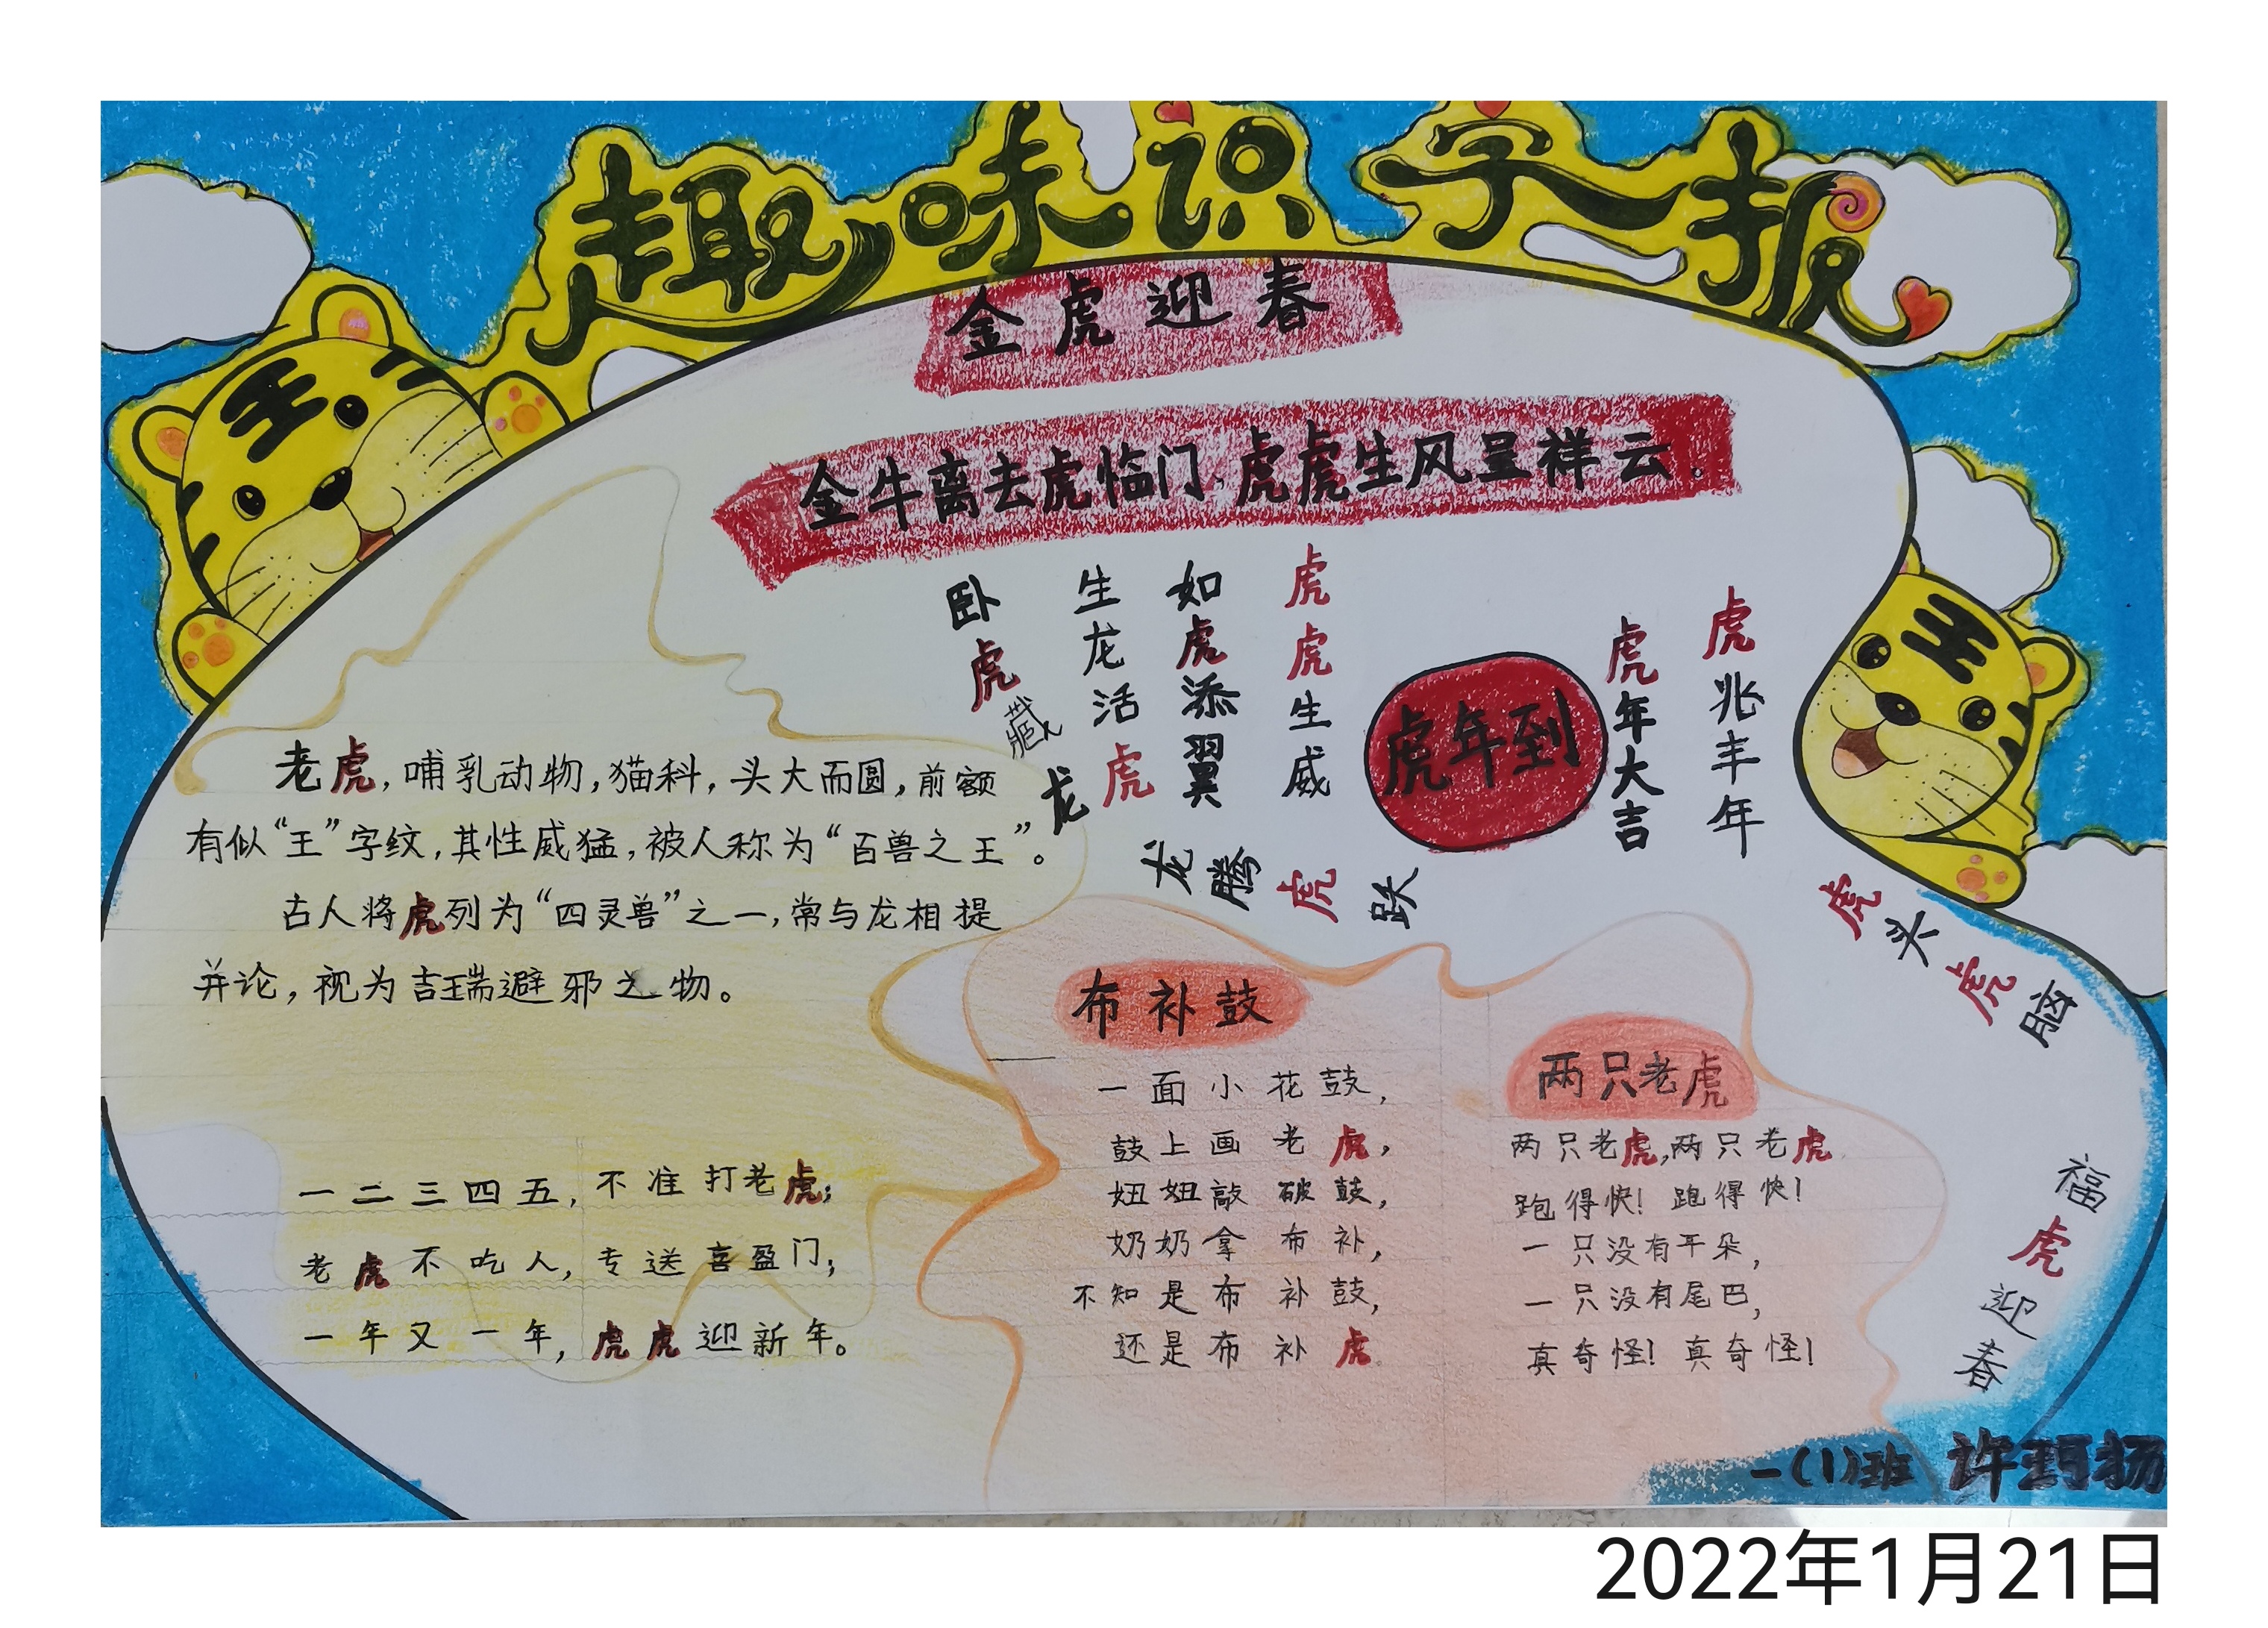 趣味识字报
金虎迎春
金牛离去虎临门,虎虎生风呈祥云。
卧虎藏龙
生龙活虎
如虎添翼
虎虎生威
龙腾虎跃
虎年到
虎年大吉
虎兆丰年
虎头虎脑
福虎迎春
老虎,哺乳动物,猫科,头大而圆,前额
有似“王”字纹,其性威猛,被人称为“百兽之王”。
古人将虎列为“四灵兽”之一,常与龙相提
并论,视为吉瑞避邪之物。
一二三四五,不准打老虎;
老虎不吃人,专送喜盈门;
一年又一年,虎虎迎新年。
布补鼓
一面小花鼓,
鼓上画老虎,
妞妞敲破鼓,
奶奶拿布补,
不知是布补鼓,
还是布补虎。
两只老虎
两只老虎,两只老虎
跑得快!跑得快!
一只没有耳朵,
一只没有尾巴,
真奇怪!真奇怪!
一(1)班 许扬
2022年1月21日